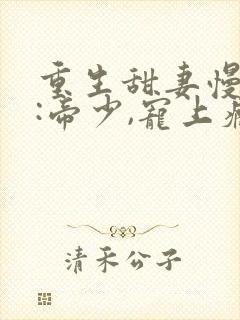 重生甜妻慢
:帝少,宠上
清禾公子